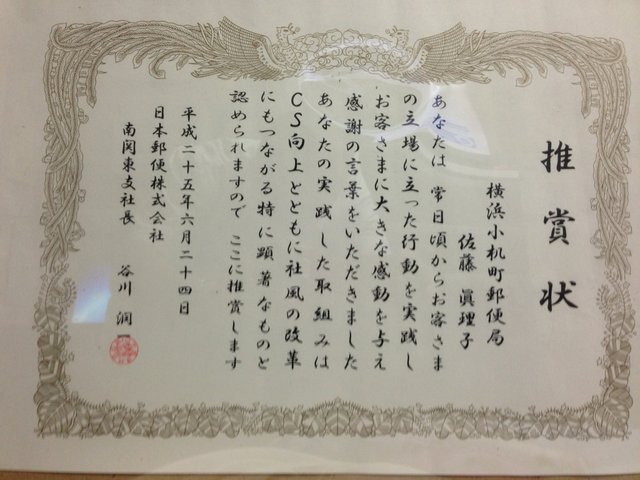 推賞状
横浜小机町郵便局
佐藤眞理子
あなたは 常日頃からお客さま
の立場に立った行動を実践し
お客さまに大きな感動を与え
感謝の言葉をいただきました
あなたの実践した取組みは
CS向上とともに社風の改革
にもつながる特に顕著なものと
認められますので ここに推賞します
平成二十五年六月二十四日
日本郵便株式会社
南関東支社長 谷川 潤